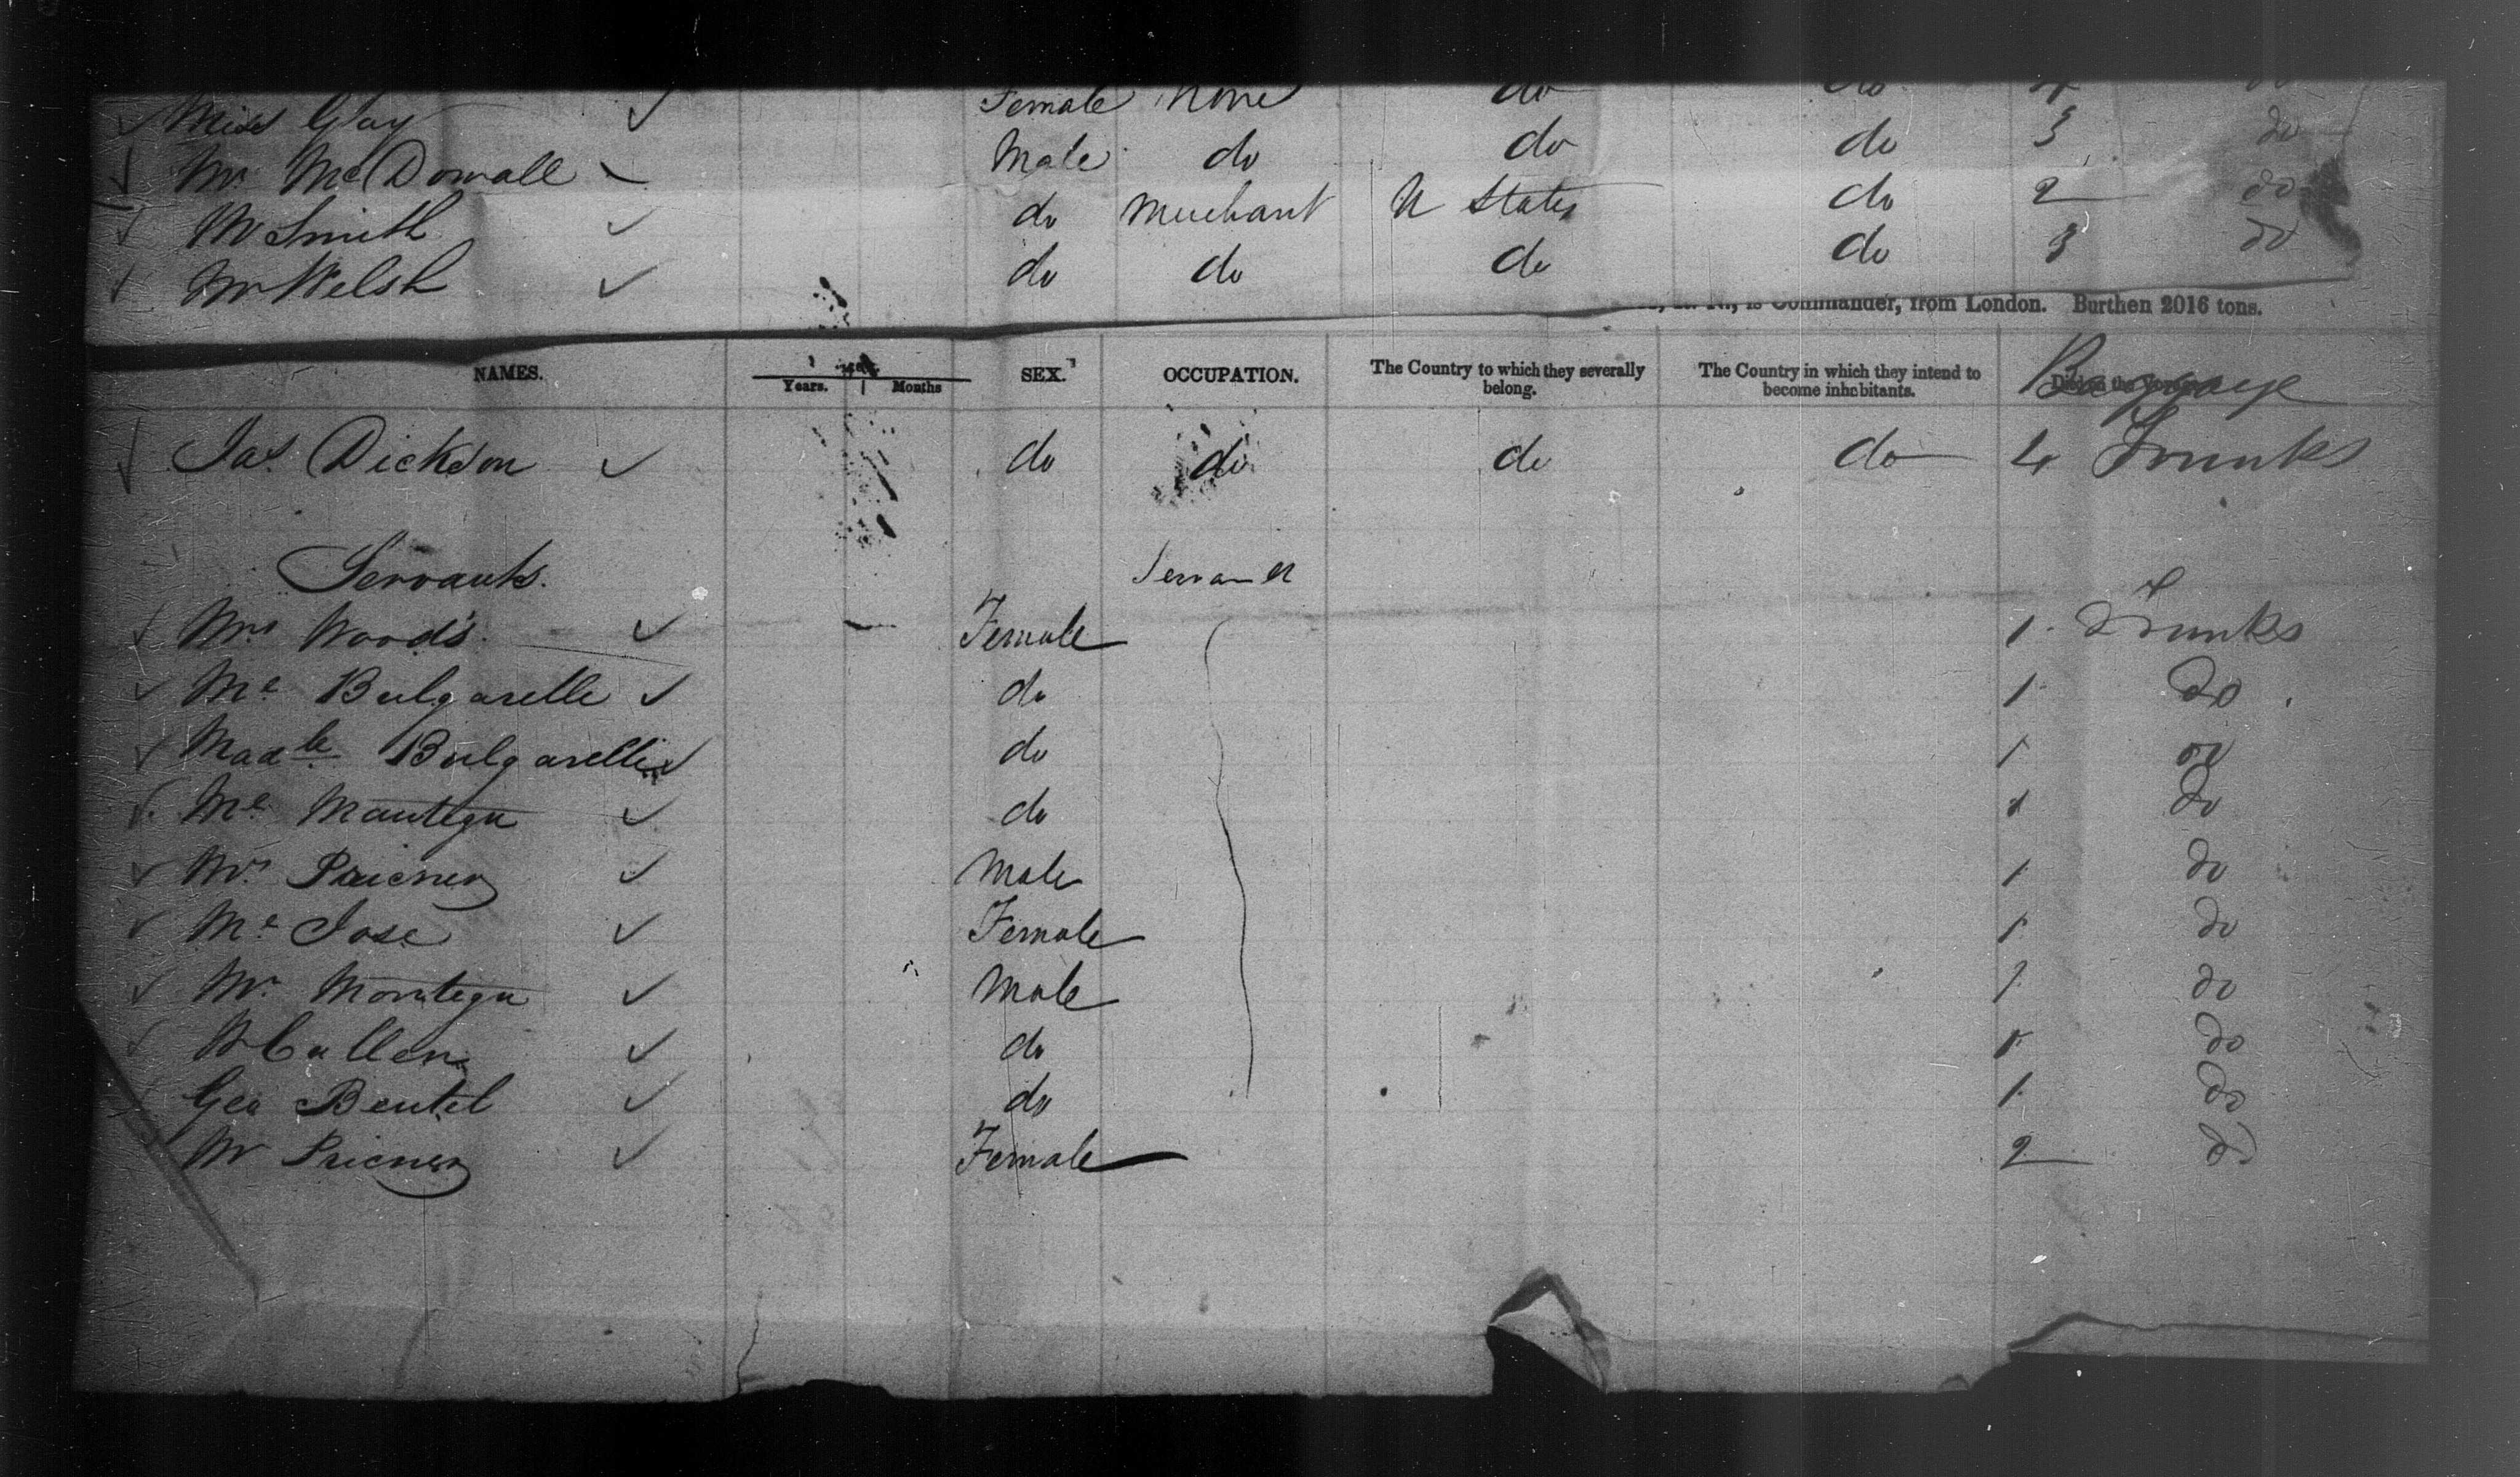 Miss Gay Female None do
Mr McDowall Male do do do 3 do
Mr Smith do Merchant U States do 2 do
Mr Welsh do do do do 3 do
is Commander, from London. Burthen 2016 tons.
NAMES. Years. Months SEX. OCCUPATION. The Country to which they severally belong. The Country in which they intend to become inhabitants. Baggage
Jas. Dickson do do do do 4 Trunks
Servants. Servant
Mrs Woods Female 1 Trunks
Me Bulgarelle do 1 do
Madle Bulgarelli do 1 do
Me Mantegu do 1 do
Mr Pricner Male 1 do
Me Jose Female 1 do
Mr Montegu Male 1 do
Cullen do 1 do
Geo Beutel do 1 do
Mr Pricner Female 2 do